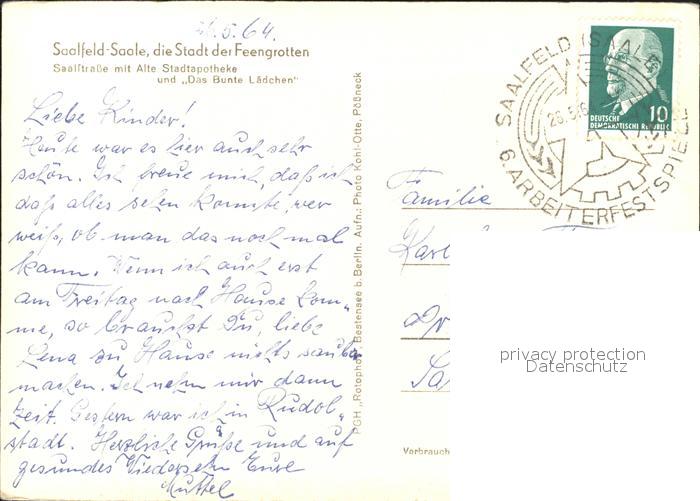 .5.64.
Saalfeld-Saale, die Stadt der Feengrotten
Saalstraße mit Alte Stadtapotheke
und „Das Bunte Lädchen"
Liebe Kinder!
Heute war es hier auch sehr
schön. Ich freue mich, daß ich
daß alles sehen konnte, wer
weiß, ob man das noch mal
kann. Wenn ich auch erst
am Freitag nach Hause kom-
me, so brauchst Du, liebe
Lena zu Hause nichts sauber
machen. Ich nehm mir dann
Zeit. Gestern war ich in Rudol-
stadt. Herzliche Grüße und auf
gesundes Wiedersehn Eure
Muttel
PGH „Rotophot", Bestensee b. Berlin. Aufn.: Photo Kohl-Otte, Pößneck
SAALFELD (SAALE)
6. ARBEITERFESTSPIELE
10
DEUTSCHE
DEMOKRATISCHE REPUBLIK
Familie
Karl
Dr
Sa
Verbrauch
privacy protection
Datenschutz